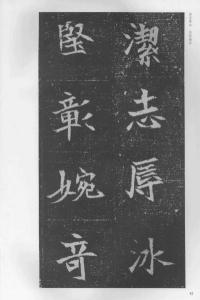 潔志辱冰
堅彰婉音